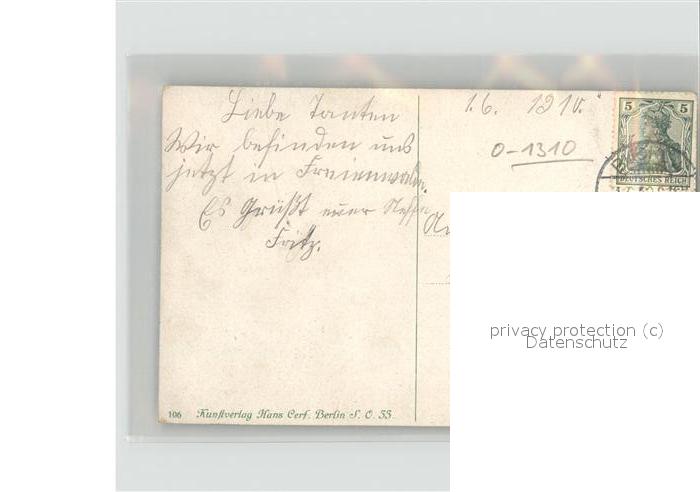 Liebe Tanten
1.6. 1910.
Wir befinden uns
0-1310
jetzt in Freienwalde.
Es Grüßt euer Neffe
Fritz.
5 5
DEUTSCHES REICH
privacy protection (c)
Datenschutz
106 Kunstverlag Hans Cerf. Berlin S. O. 33